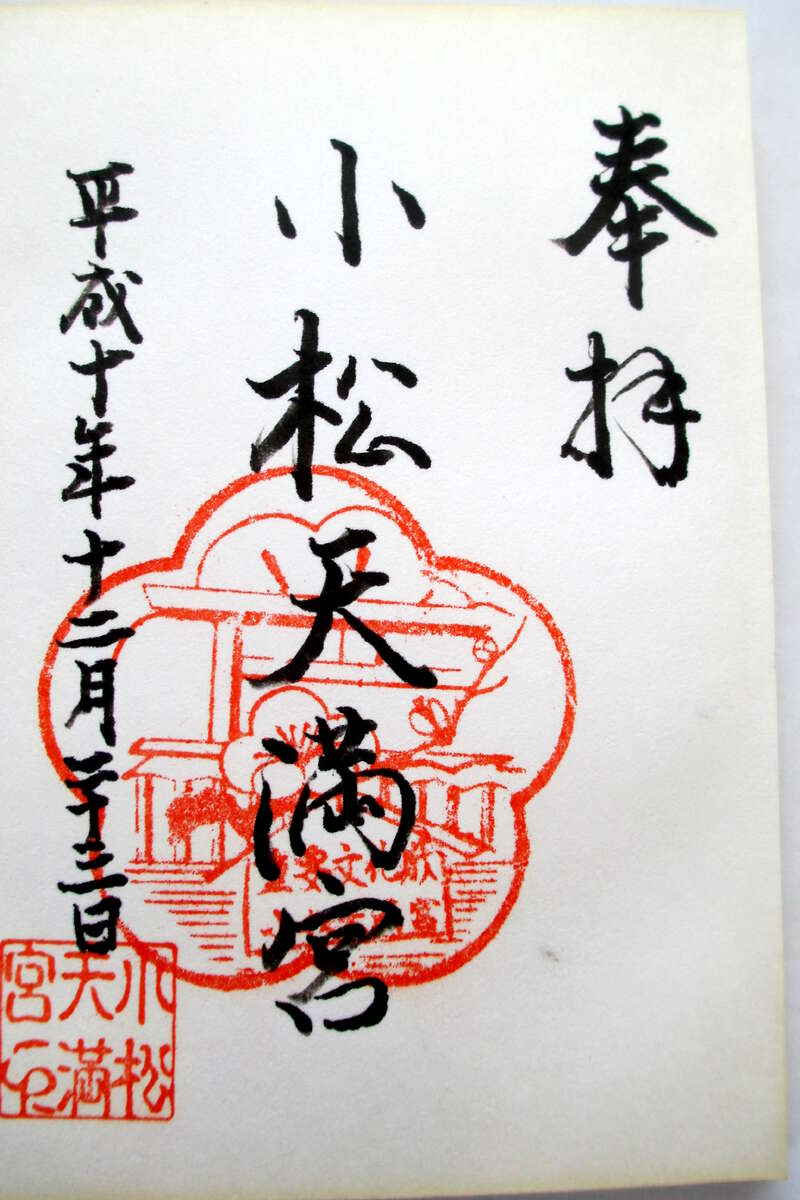 奉拝
小松天満宮
平成十年十二月二十三日
重要文化財
小松
天満
宮印